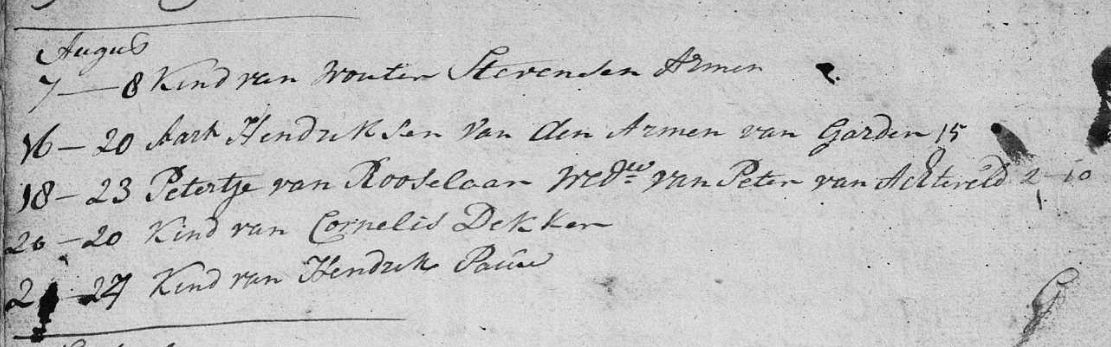 Augus
7 — 8 Kind van Wouter Stevensen Armen
16 — 20 Aart Hendriksen van den Armen van Garden 15
18 — 23 Petertje van Rooselaar Wedue van Peter van Achteveld 2 — 10
20 — 20 Kind van Cornelis Dekker
27 Kind van Hendrik Pauw